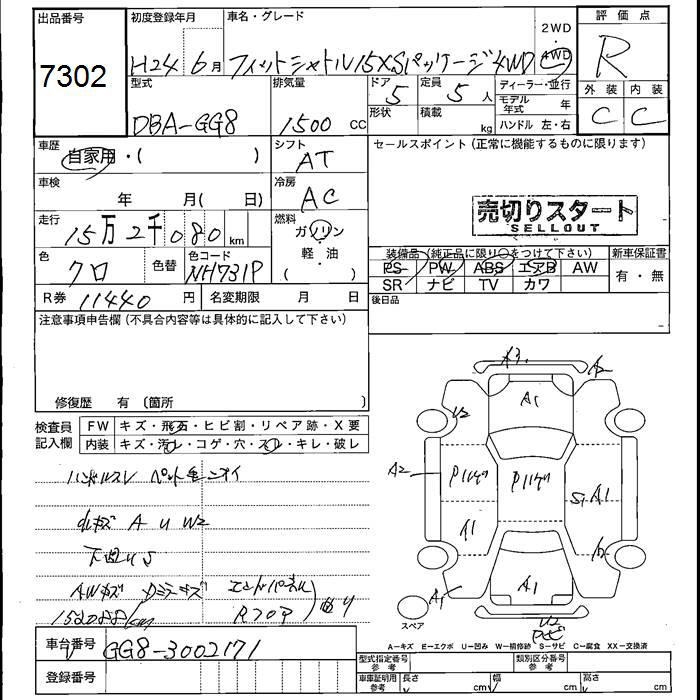 出品番号
7302
初度登録年月
H24 6月
車名・グレード
フィットシャトル15XSパッケージ4WD
2WD
・
4WD
評価点
R
外装 内装
C C
型式
DBA-GG8
排気量
1500 CC
ドア 5
形状
定員 5 人
積載 kg
ディーラー・並行
モデル年式 年
ハンドル 左・右
車歴
自家用・( )
シフト
AT
車検
年 月( 日)
冷房
AC
走行
15万2千080km
燃料
ガソリン
軽・油
( )
色
クロ
色替
色コード
NH731P
R券 11440 円
名変期限 月 日
セールスポイント(正常に機能するものに限ります)
売切りスタート
SELLOUT
装備品(純正品に限り○をつけて下さい)
新車保証書
PS PW ABS エアB AW
SR ナビ TV カワ
有・無
後日品
注意事項申告欄(不具合内容等は具体的に記入して下さい)
修復歴 有 〔箇所 〕
検査員
記入欄
FW キズ・飛石・ヒビ割・リペア跡・X要
内装 キズ・汚レ・コゲ・穴・スレ・キレ・破レ
ハンドルスレ ペット毛ニオイ
小キズ A U W2
下廻りS
AWキズ Dミラーキズ エンドパネル
Rフロア
有り
152080km
A3
A2
A1
U2
A2
P11ﾀﾃ
P11ﾀﾃ
S1 A1
A1
A2
A1
A1
U2
スペア
A=キズ E=エクボ U=凹み W=補修跡 S=サビ C=腐食 XX=交換済
車台番号 GG8-3002171
登録番号
型式指定番号
参考
類別区分番号
参考
車庫証明用
参考
長さ cm
幅 cm
高さ cm